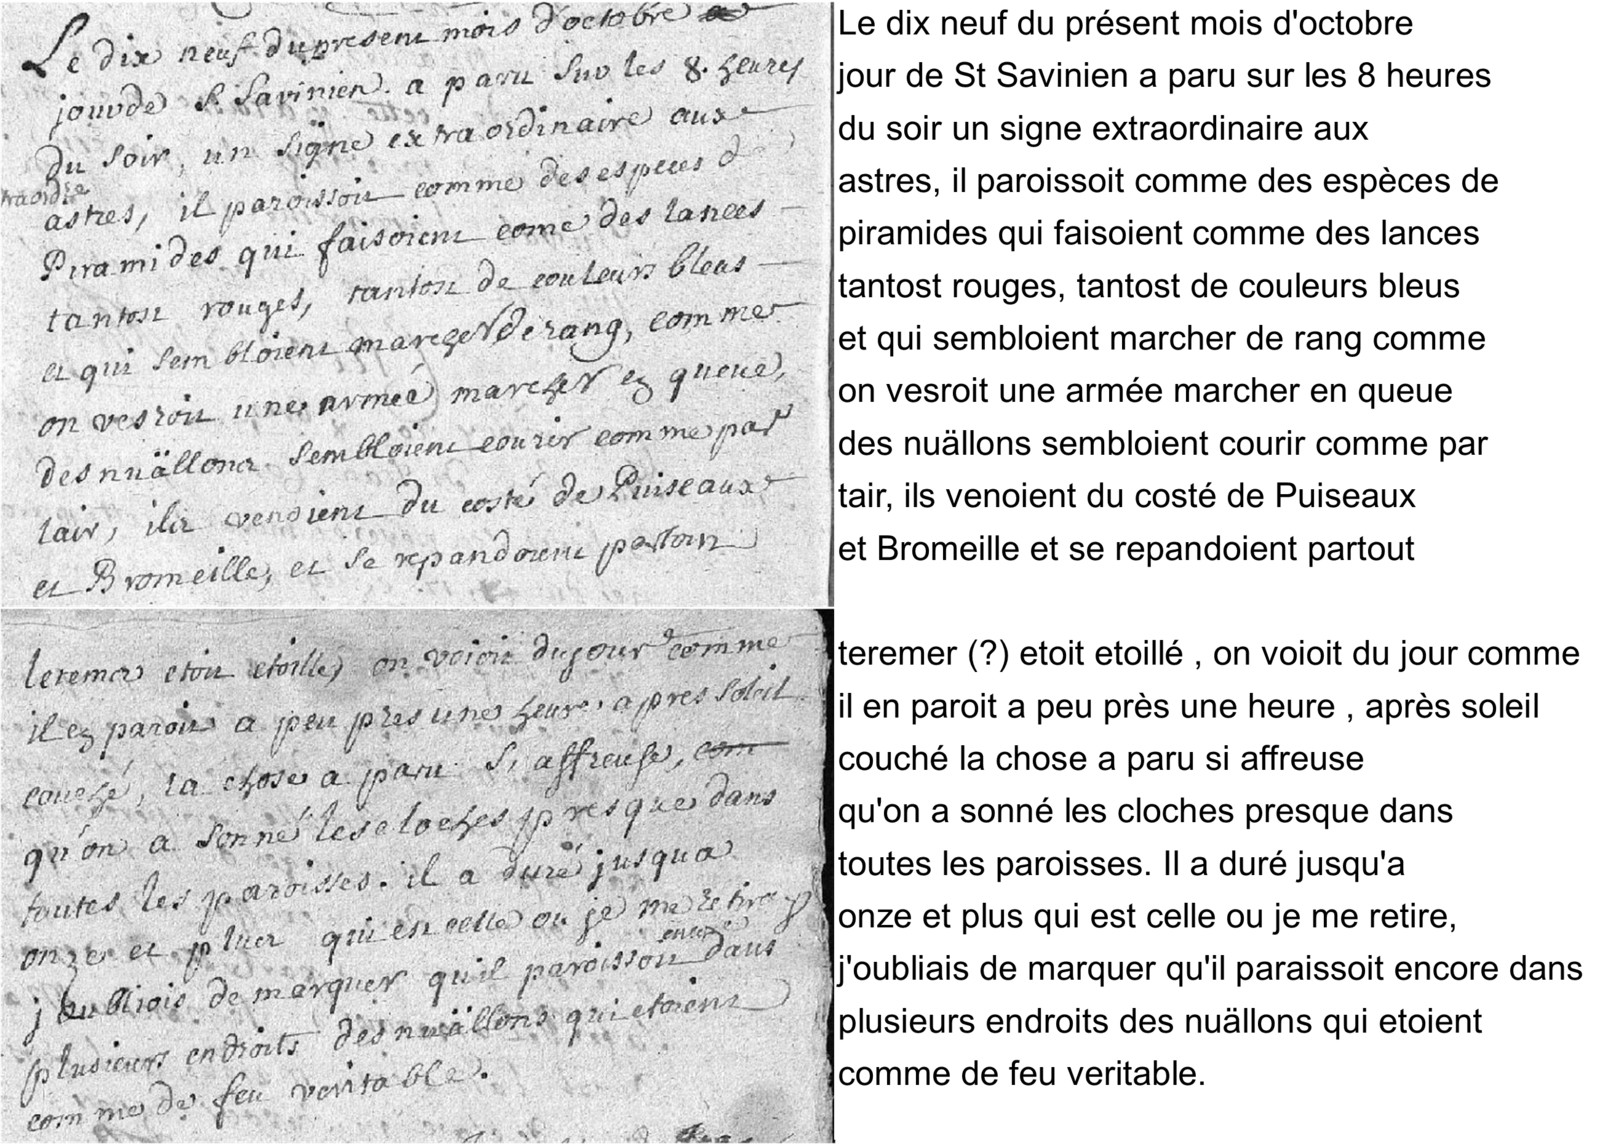 Le dix neuf du present mois d'octobre
jour de St Savinien. a paru sur les 8. heures
du soir, un signe extraordinaire aux
astres, il paroissoit comme des especes d
Piramides qui faisoient come des lances
tantost rouges, tantost de couleurs bleus
et qui sembloient marcher de rang, comme
on vesroit une armée marcher en queue,
des nuällons sembloient courir comme par
lair, ils venoient du costé de Puiseaux
et Bromeille, et se repandoient partout
etoit etoillé, on voioit du jour comme
il en paroit a peu pres une heure apres soleil
couché, la chose a paru si affreuse, com
qu'on a sonné les cloches presque dans
toutes les paroisses. il a duré jusqua
onze et plus qui est celle ou je me retire
j'oubliois de marquer quil paroissoit encore dans
plusieurs endroits des nuällons qui etoient
comme de feu veritable.
Le dix neuf du présent mois d'octobre
jour de St Savinien a paru sur les 8 heures
du soir un signe extraordinaire aux
astres, il paroissoit comme des espèces de
piramides qui faisoient comme des lances
tantost rouges, tantost de couleurs bleus
et qui sembloient marcher de rang comme
on vesroit une armée marcher en queue
des nuällons sembloient courir comme par
tair, ils venoient du costé de Puiseaux
et Bromeille et se repandoient partout
teremer (?) etoit etoillé , on voioit du jour comme
il en paroit a peu près une heure , après soleil
couché la chose a paru si affreuse
qu'on a sonné les cloches presque dans
toutes les paroisses. Il a duré jusqu'a
onze et plus qui est celle ou je me retire,
j'oubliais de marquer qu'il paraissoit encore dans
plusieurs endroits des nuällons qui etoient
comme de feu veritable.